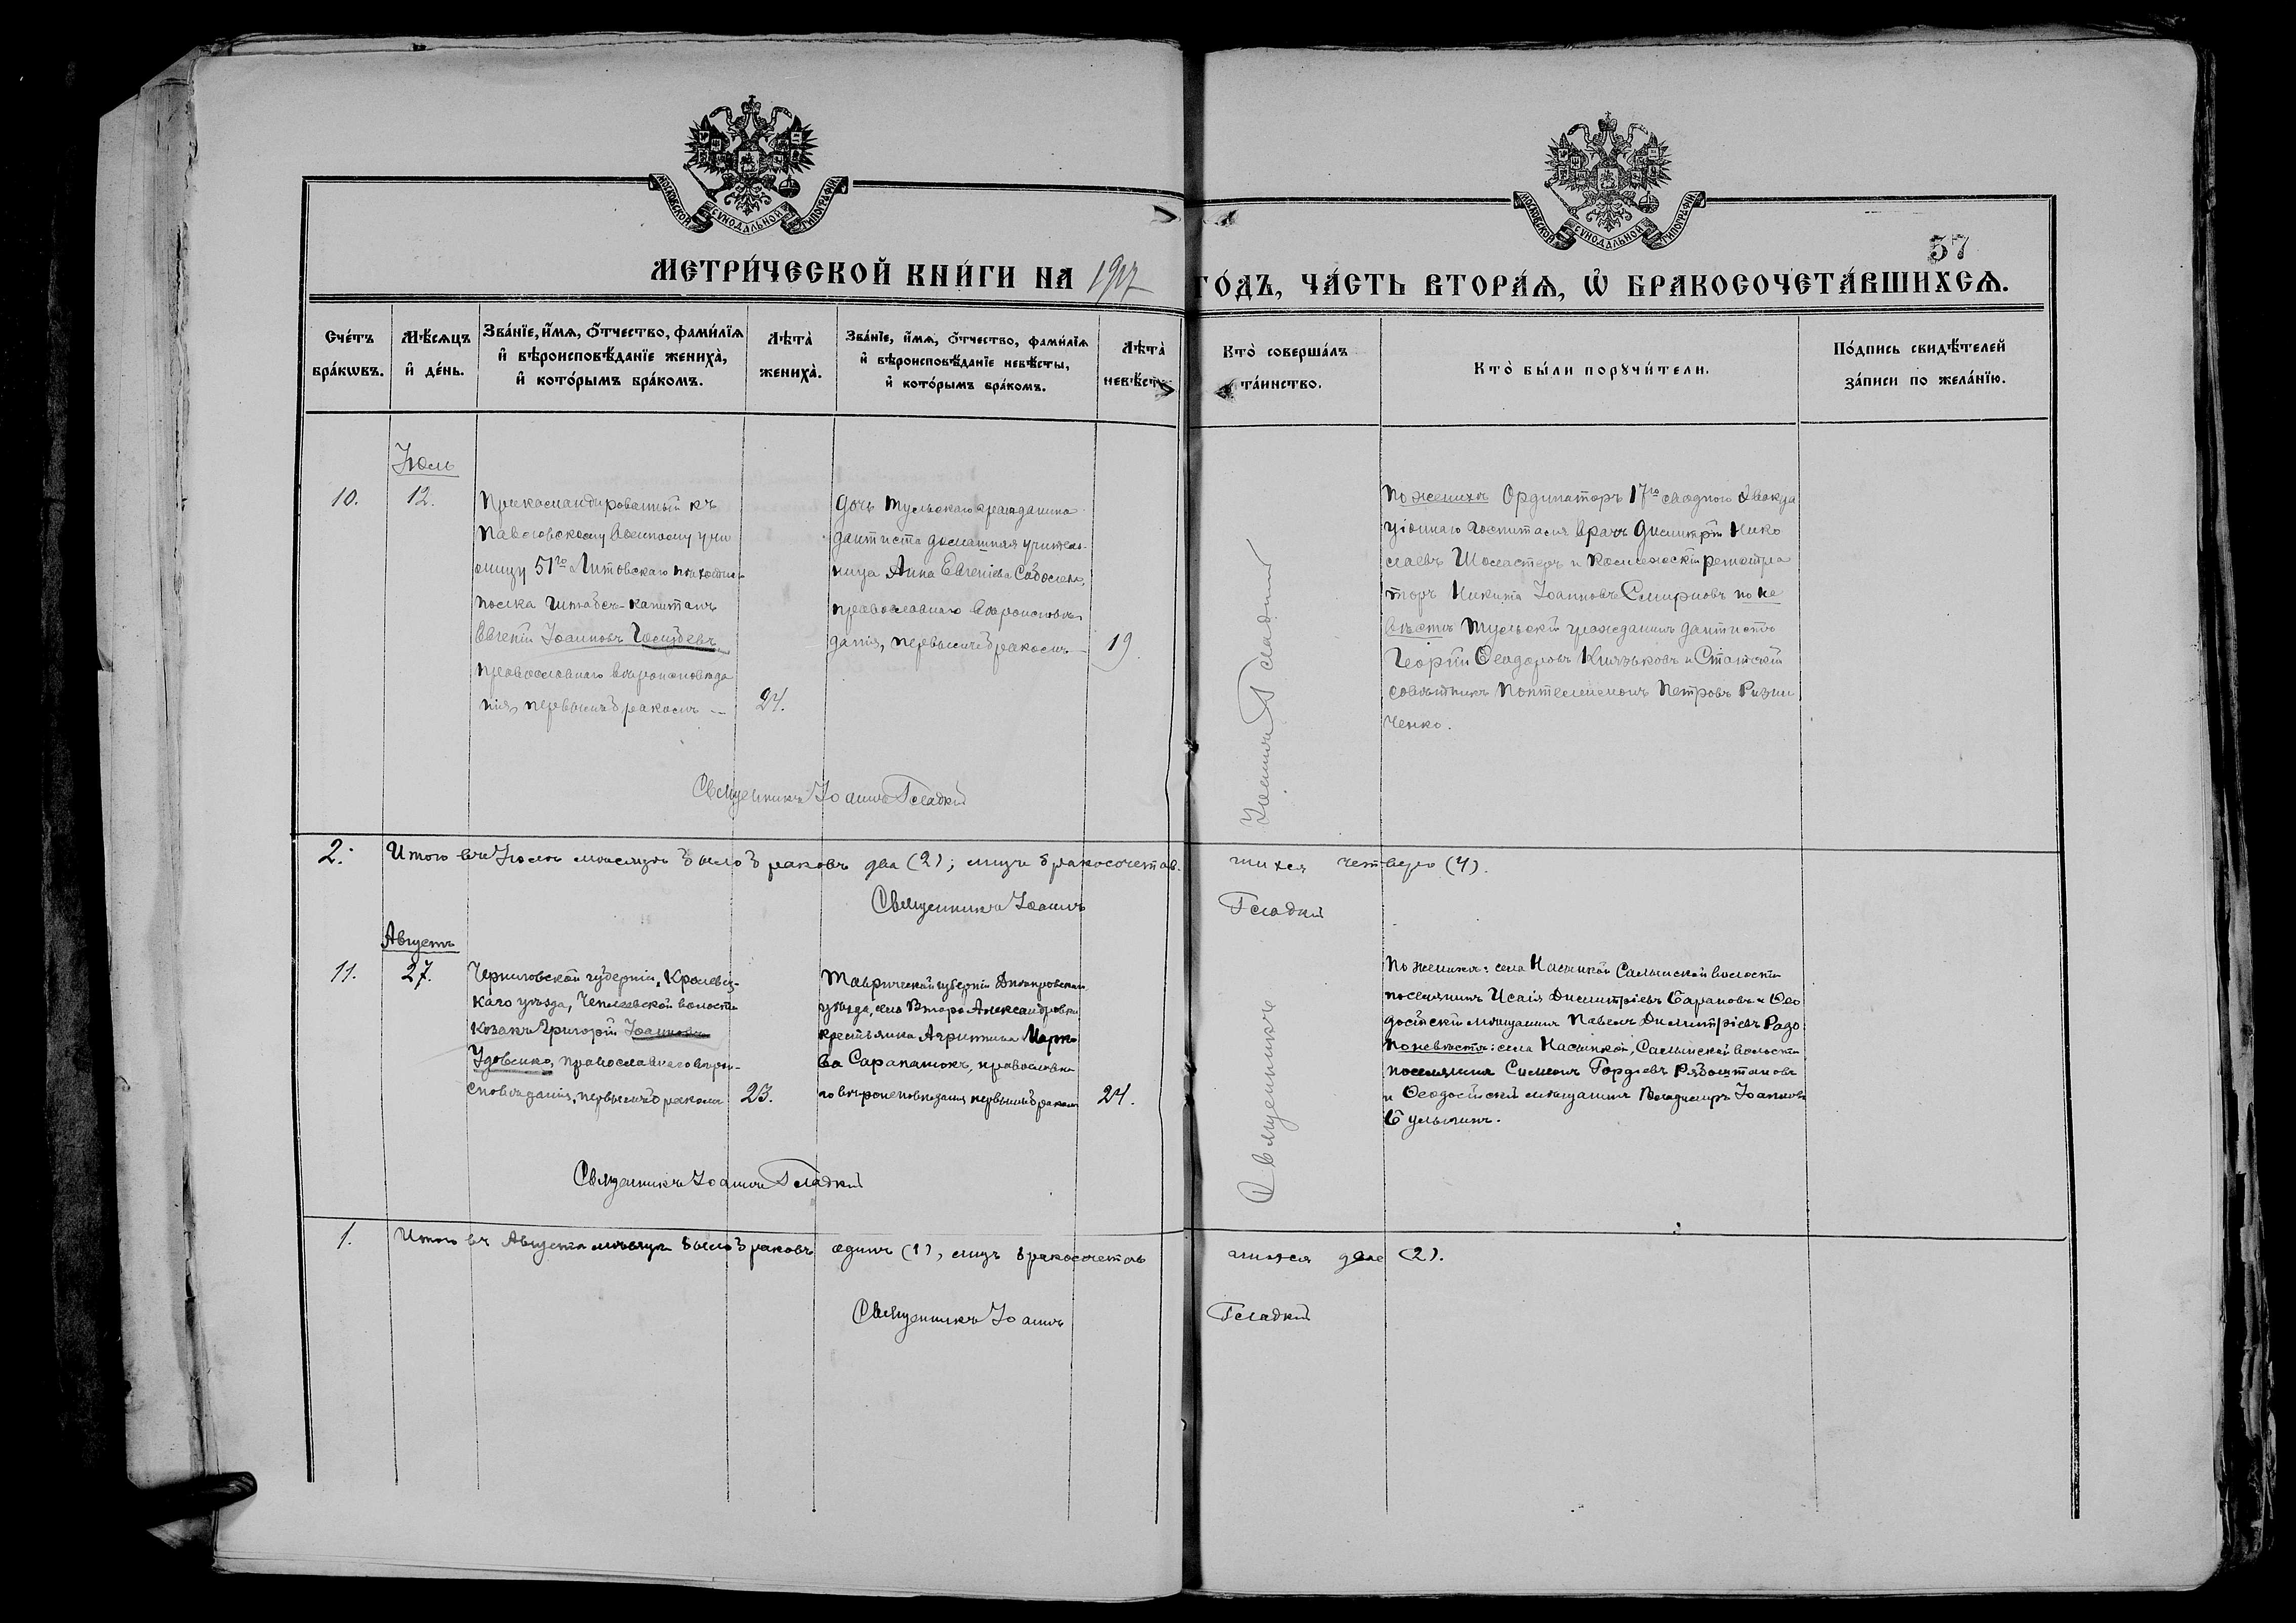 МОСКОВСКОЙ СУНОДАЛЬНОЙ ТИПОГРАФІИ
МОСКОВСКОЙ СУНОДАЛЬНОЙ ТИПОГРАФІИ
57
МЕТРИ́ЧЕСКОЙ КНИ́ГИ НА 1917 ГО́ДЪ, ЧА́СТЬ ВТОРА́Ѧ, Ѽ БРАКОСОЧЕТА́ВШИХСѦ.
Сче́тъ
бра́кѡвъ.
Мѣ́сѧцъ
и҆ де́нь.
Зва́нїе, и҆́мѧ, ѻ҆́тчество, фами́лїѧ
и҆ вѣроисповѣ́данїе жениха̀,
и҆ кото́рымъ бра́комъ.
Лѣта̀
жениха̀.
Зва́нїе, и҆́мѧ, ѻ҆́тчество, фами́лїѧ
и҆ вѣроисповѣ́данїе невѣ́сты,
и҆ кото́рымъ бра́комъ.
Лѣта̀
невѣ́сты
Кто̀ соверша́лъ
та́инство.
Кто̀ бы́ли порꙋчи́тели.
По́дпись свидѣ́телей
за́писи по жела́нїю.
Іюль
10.
12.
Прикомандированный къ
Павловскому Военному учи
лищу 51го Литовскаго пѣхотн
полка Штабсъ-капитанъ
Евгеній Іоанновъ
православнаго вѣроисповѣда
нія, первымъ бракомъ —
24.
Дочь Тульскаго гражданина
дантиста домашняя учитель-
ница Анна Евгеніева
православнаго вѣроисповѣ
данія, первымъ бракомъ —
19
Іоаннъ Гладкій
По женихѣ Ординаторъ 17го сводного Эвакуа
ціоннаго госпиталя врачъ Димитрій Нико
лаевъ Шоластеръ и Коллежскій регистра
торъ Никита Іоанновъ Смирновъ по не
вѣстѣ Тульскій гражданинъ дантистъ
Георгій Ѳеодоровъ Князьковъ и Статскій
совѣтникъ Пантелеимонъ Петровъ Ризни
ченко.
Священникъ Іоаннъ Гладкій
2.
Итого въ Іюлѣ мѣсяцѣ было браковъ два (2); лицъ бракосочетав-
шихся четверо (4).
Священникъ Іоаннъ Гладкій
Августъ
11.
27.
Черниговской губерніи, Кролевец-
каго уѣзда, Чеплеевской волости
козакъ Григорій Іоанновъ
Удовенко, православнаго вѣрои-
сповѣданія, первымъ бракомъ
23.
Таврической губерніи Днѣпровскаго
уѣзда, села Второ Александровки
крестьянка Агриппина Марко
ва Сарапатюкъ, православна
го вѣроисповѣданія первымъ бракомъ
24.
Священникъ
По женихѣ: села Насыпкой Салынской волости
поселянинъ Исаія Димитріевъ Барановъ и Ѳео
досійскій мѣщанинъ Павелъ Димитріевъ Радо
По невѣстѣ: села Насыпкой, Салынской волости
поселянинъ Симеонъ Гордіевъ Рябоштановъ
и Ѳеодосійскій мѣщанинъ Владимиръ Іоанновъ
Булыгинъ.
Священникъ Іоаннъ Гладкій
1.
Итого въ Августѣ мѣсяцѣ было браковъ одинъ (1), лицъ бракосочетав
шихся двое (2).
Священникъ Іоаннъ Гладкій